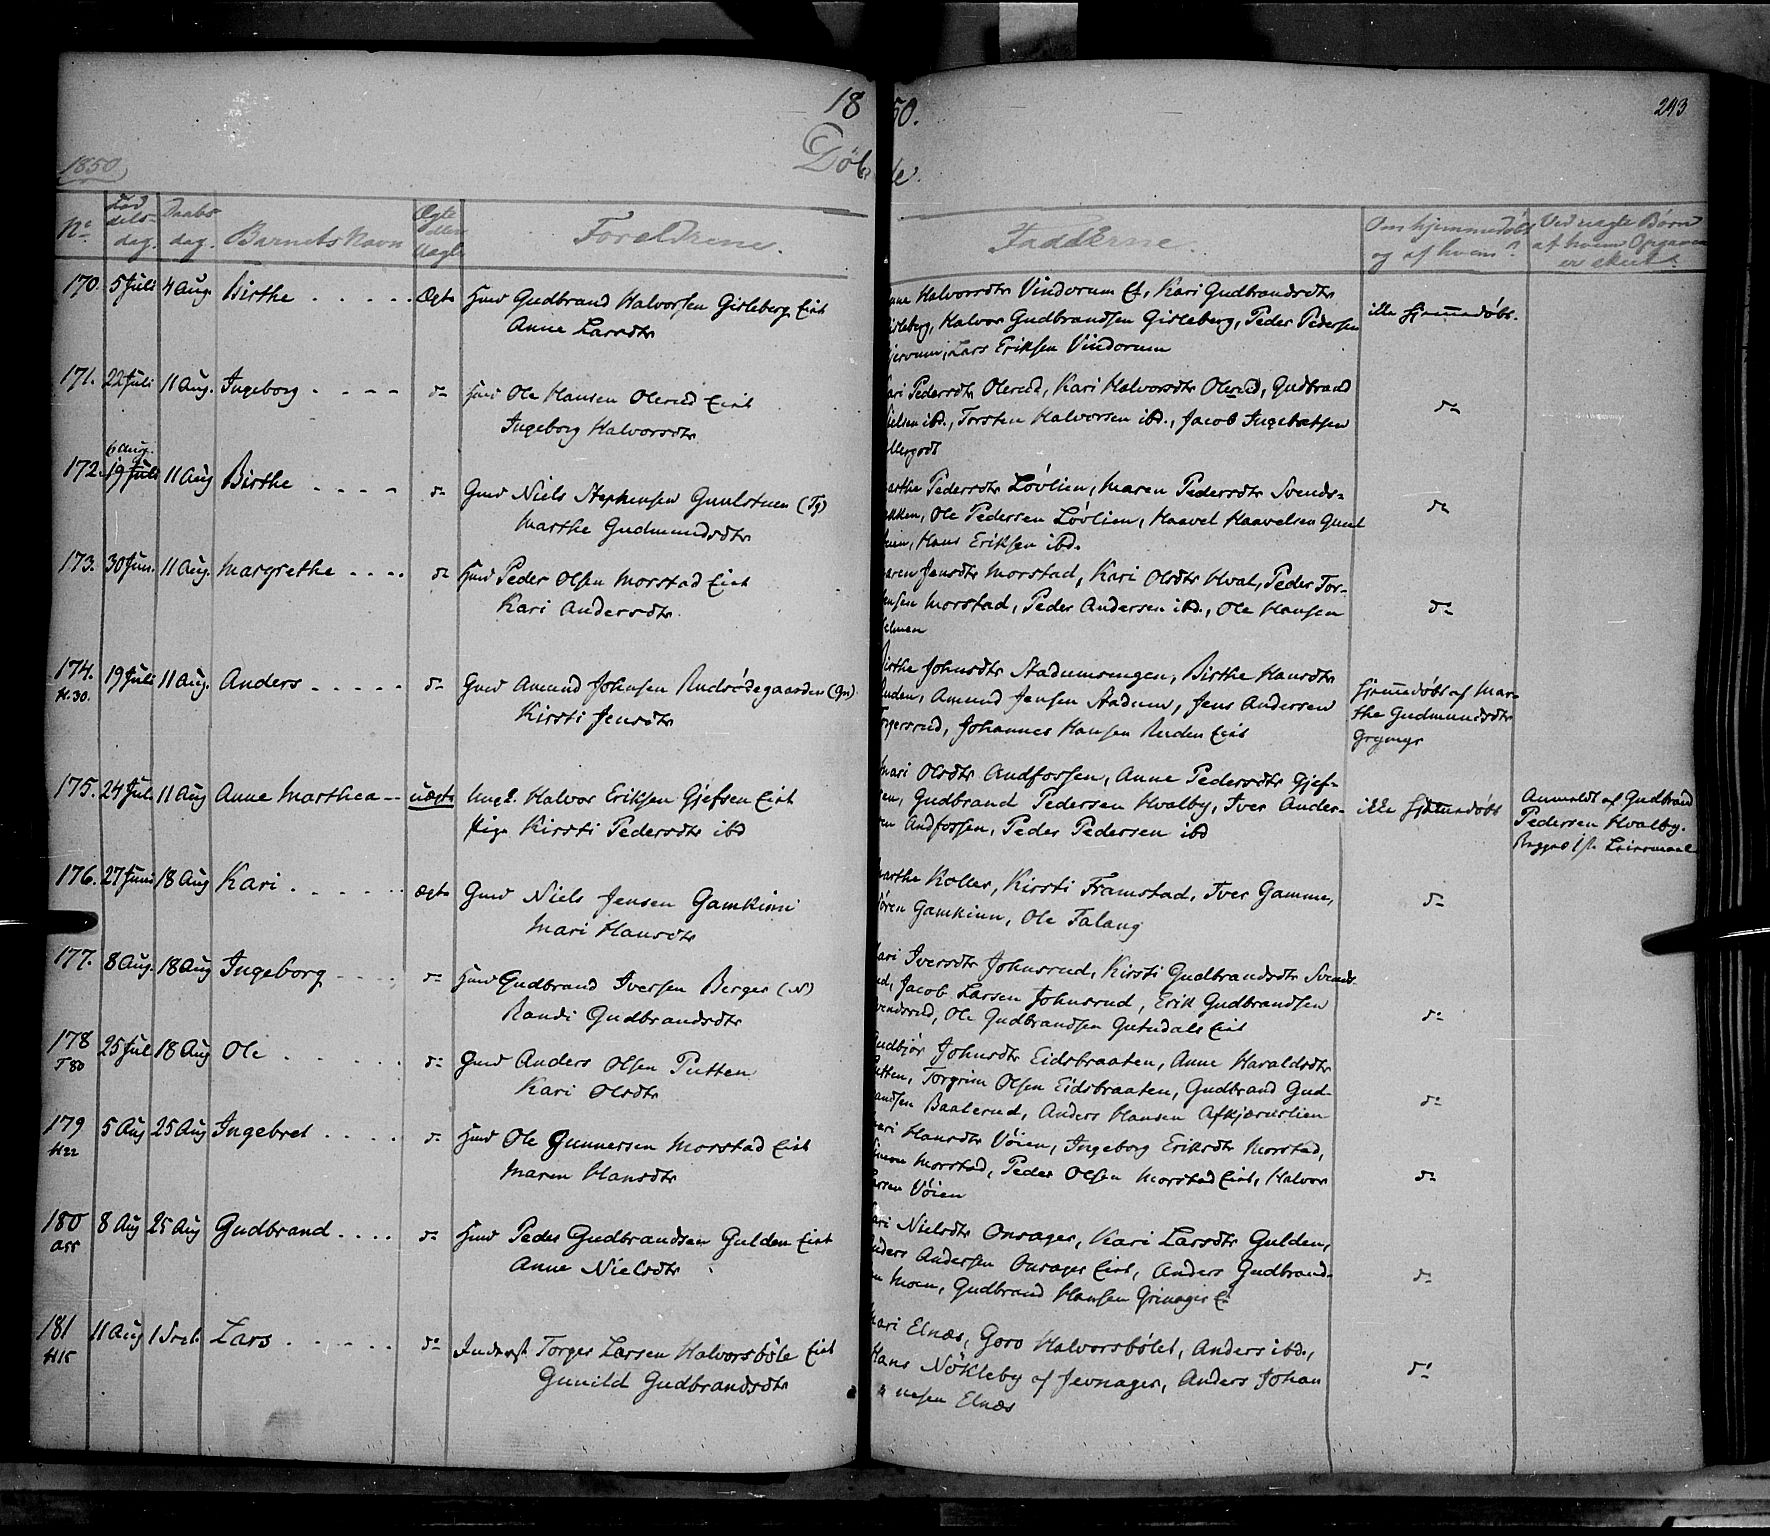 1850.
243
1850
Døbte.
No.
Fødselsdag.
Daabsdag.
Barnets Navn
Ægte eller Uægte
Forældrene.
Fadderne.
Om hjemmedøbt og af hvem?
Ved uægte Børn af hvem Opgaven er skeet.
170. 5 Juli 4 Aug. Birthe . . . . . Ægte Huusm Gudbrand Halvorsen Gisleberg Eiet
Anne Larsdtr
Halvorsdtr Vindorum Et, Kari Gudbrandsdtr
Gisleberg, Halvor Gudbrandsen Gisleberg, Peder Pedersen
Lars Eriksen Vindorum
ikke hjemmedøbt.
171. 22 Juli 11 Aug. Ingeborg . . . . do Huusm Ole Hansen Olerud Eiet
Ingeborg Halvorsdtr
Kari Pedersdtr Olerud, Kari Halvorsdtr Olerud, Gudbrand
Nielsen ibd., Torsten Halvorsen ibd., Jacob Ingebretsen
do
6 Aug.
172. 19 Juli 11 Aug Birthe . . . . do Gmd Niels Stephensen (Tg)
Marthe Gudmundsdtr
Marthe Pedersdtr Løvlien, Maren Pedersdtr Svends-
Ole Pedersen Løvlien, Haavel Haavelsen
Hans Eriksen ibd.
do
173. 30 Jun. 11 Aug. Margrethe . . . . do Huusm Peder Olsen Morstad Eiet
Kari Andersdtr.
Maren Jensdtr Morstad, Kari Olsdtr Hval, Peder Tor-
Morstad, Peder Andersen ibd., Ole Hansen
do
174. H.30. 19 Juli 11 Aug. Anders . . . . . do Gmd Amund Johnsen Rudsødegaarden (Gr).
Kirsti Jensdtr
Birthe Johnsdtr Stadumsengen, Birthe Hansdtr
Ruden, Amund Jensen Stadum, Jens Andersen
Johannes Hansen Ruden Eiet
hjemmedøbt af Mar-
the Gudmundsdtr
Grymyr
175. 24 Juli 11 Aug Anne Marthea -- uægte Ungk. Halvor Eriksen Gjefsen Eiet
Pige Kirsti Pedersdtr ibd
Mari Olsdtr Andfossen, Anne Pedersdtr Gjef-
sen, Gudbrand Pedersen Hvalby, Iver Ander-
sen Andfossen, Peder Pedersen ibd
ikke hjemmedøbt
Anmeldt af Gudbrand
Pedersen Hvalby.
Begges 1ste Leiermaal
176. 27 Juni 18 Aug Kari . . . . . . ægte Gmd Niels Jensen Gamkinn
Mari Hansdtr
Marthe Koller, Kirsti Framstad, Iver Gamme,
Søren Gamkinn, Ole Falang
do
177. 8 Aug. 18 Aug Ingeborg . . . . do Huusm Gudbrand Iversen Berger (N)
Randi Gudbrandsdtr
Mari Iversdtr Johnsrud, Kirsti Gudbrandsdtr Svends-
rud, Jacob Larsen Johnsrud, Erik Gudbrandsen
Svendsrud, Ole Gudbrandsen Eiet
do
178 T80 25 Jul 18 Aug Ole . . . . . . do Gmd Anders Olsen Putten
Kari Olsdtr
Gudbjør Johnsdtr Eidsbraaten, Anne Haraldsdtr
Putten, Torgrim Olsen Eidsbraaten, Gudbrand Gud-
brandsen Baalerud, Anders Hansen
do
179 H22 5 Aug 25 Aug Ingebret . . . . do Huusm Ole Gunnersen Morstad Eiet
Maren Hansdtr
Mari Hansdtr Vøien, Ingeborg Eriksdtr Morstad,
Simen Morstad, Peder Olsen Morstad Eiet, Halvor
Larsen Vøien
do
180 8 Aug 25 Aug Gudbrand . . . . do Huusm Peder Gudbrandsen Gulden Eiet
Anne Nielsdtr
Kari Nielsdtr Onsager, Kari Larsdtr Gulden,
Anders Andersen Onsager Eiet, Anders Gudbrand-
sen Moen, Gudbrand Hansen Grinager Et
do
181 H15 11 Aug 1 Sept. Lars . . . . . . do Inderst Torger Larsen Halvorsbøle Eiet
Gunild Gudbrandsdtr
Mari Elnæs, Goro Halvorsbølet, Anders ibd.,
Hans Nøkleby af Jevnager, Anders Johan
nesen Elnæs
do